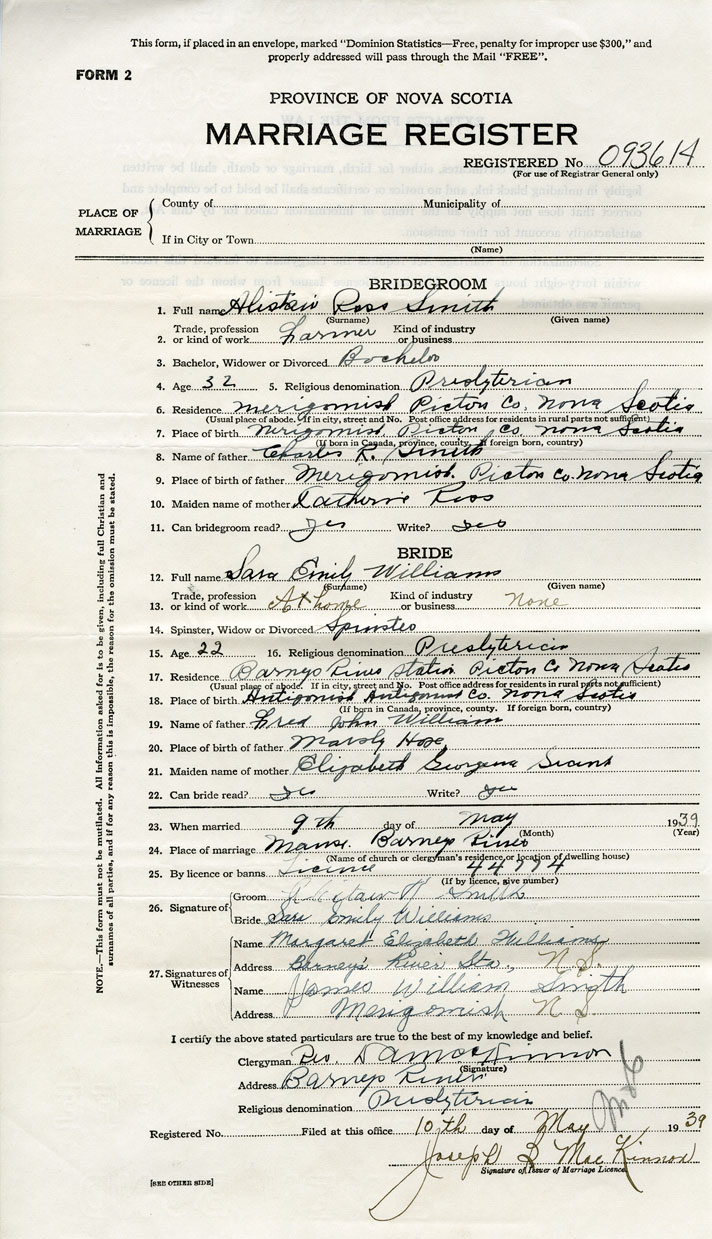 This form, if placed in an envelope, marked "Dominion Statistics—Free, penalty for improper use $300," and
properly addressed will pass through the Mail "FREE".
FORM 2
PROVINCE OF NOVA SCOTIA
MARRIAGE REGISTER
REGISTERED No 093614
(For use of Registrar General only)
PLACE OF MARRIAGE
County of Municipality of
If in City or Town
(Name)
BRIDEGROOM
1. Full name Alistair Ross Smith
(Surname) (Given name)
2. Trade, profession or kind of work Farmer Kind of industry or business
3. Bachelor, Widower or Divorced Bachelor
4. Age 32 5. Religious denomination Presbyterian
6. Residence Merigomish Pictou Co. Nova Scotia
(Usual place of abode. If in city, street and No. Post office address for residents in rural parts not sufficient)
7. Place of birth Merigomish, Pictou Co. Nova Scotia
(If born in Canada, province, county. If foreign born, country)
8. Name of father Charles R. Smith
9. Place of birth of father Merigomish. Pictou Co. Nova Scotia
10. Maiden name of mother Catherine Ross
11. Can bridegroom read? Yes Write? Yes
BRIDE
12. Full name Sara Emily Williams
(Surname) (Given name)
13. Trade, profession or kind of work At home Kind of industry or business None
14. Spinster, Widow or Divorced Spinster
15. Age 22 16. Religious denomination Presbyterian
17. Residence Barneys River Station Pictou Co Nova Scotia
(Usual place of abode. If in city, street and No. Post office address for residents in rural parts not sufficient)
18. Place of birth Antigonish Antigonish Co. Nova Scotia
(If born in Canada, province, county. If foreign born, country)
19. Name of father Fred John Williams
20. Place of birth of father Marshy Hope
21. Maiden name of mother Elizabeth Georgena
22. Can bride read? Yes Write? Yes
23. When married 9th day of May 1939
(Month) (Year)
24. Place of marriage Manse. Barneys River
(Name of church or clergyman's residence, or location of dwelling house)
25. By licence or banns Licence 44994
(If by licence, give number)
26. Signature of
Groom Alistair R Smith
Bride Sara Emily Williams
27. Signatures of Witnesses
Name Margaret Elizabeth Williams
Address Barney's River Sta., N.S.
Name James William Smith
Address Merigomish N S
I certify the above stated particulars are true to the best of my knowledge and belief.
Clergyman Rev. D A MacKinnon
(Signature)
Address Barneys River
Religious denomination Presbyterian
Registered No. Filed at this office 10th day of May 1939
Joseph D MacKinnon
Signature of Issuer of Marriage Licence
[SEE OTHER SIDE]
NOTE.—This form must not be mutilated. All information asked for is to be given, including full Christian and
surnames of all parties, and if for any reason this is impossible, the reason for the omission must be stated.